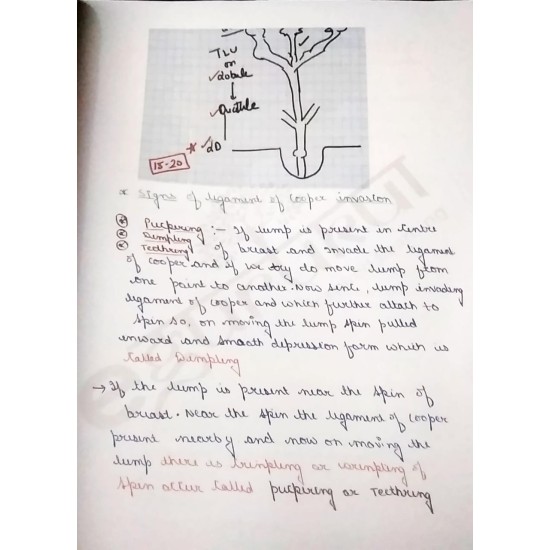 TLU
or
Lobule
Ductule
LD
15-20
* Signs of ligament of Cooper invasion
Puckering :- If lump is present in Centre
Dimpling of breast and invade the ligament
Teethring
of Cooper and if we try do move lump from
one point to another. Now since, lump invading
ligament of cooper and which further attach to
spin so, on moving the lump spin pulled
inward and smooth depression form which is
Called Dumpling
→ If the lump is present near the spin of
breast. Near the spin the ligament of cooper
present nearby and now on moving the
lump there is or of
spin occur Called puckring or Teethring